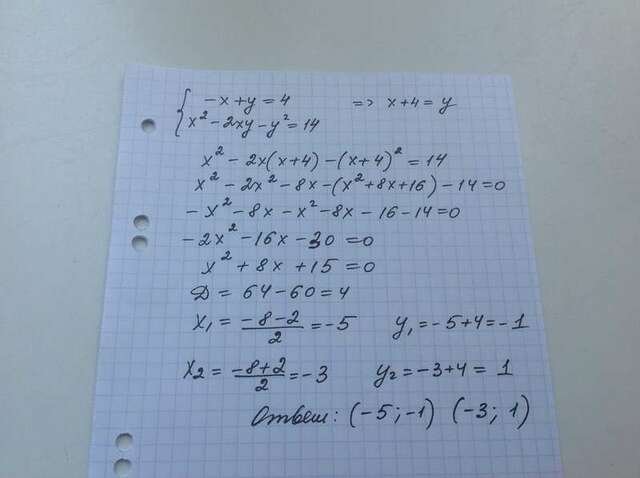 -x+y=4 => x+4=y
x²-2xy-y²=14
x²-2x(x+4)-(x+4)²=14
x²-2x²-8x-(x²+8x+16)-14=0
-x²-8x-x²-8x-16-14=0
-2x²-16x-30=0
x²+8x+15=0
D=64-60=4
x₁=(-8-2)/2=-5 y₁=-5+4=-1
x₂=(-8+2)/2=-3 y₂=-3+4=1
Ответ: (-5;-1) (-3;1)